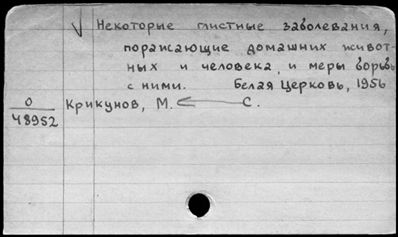 √ Некоторые глистные заболевания,
поражающие домашних живот-
ных и человека, и меры борьбы
с ними. Белая Церковь, 1956
О
48952
Крикунов, М. С.